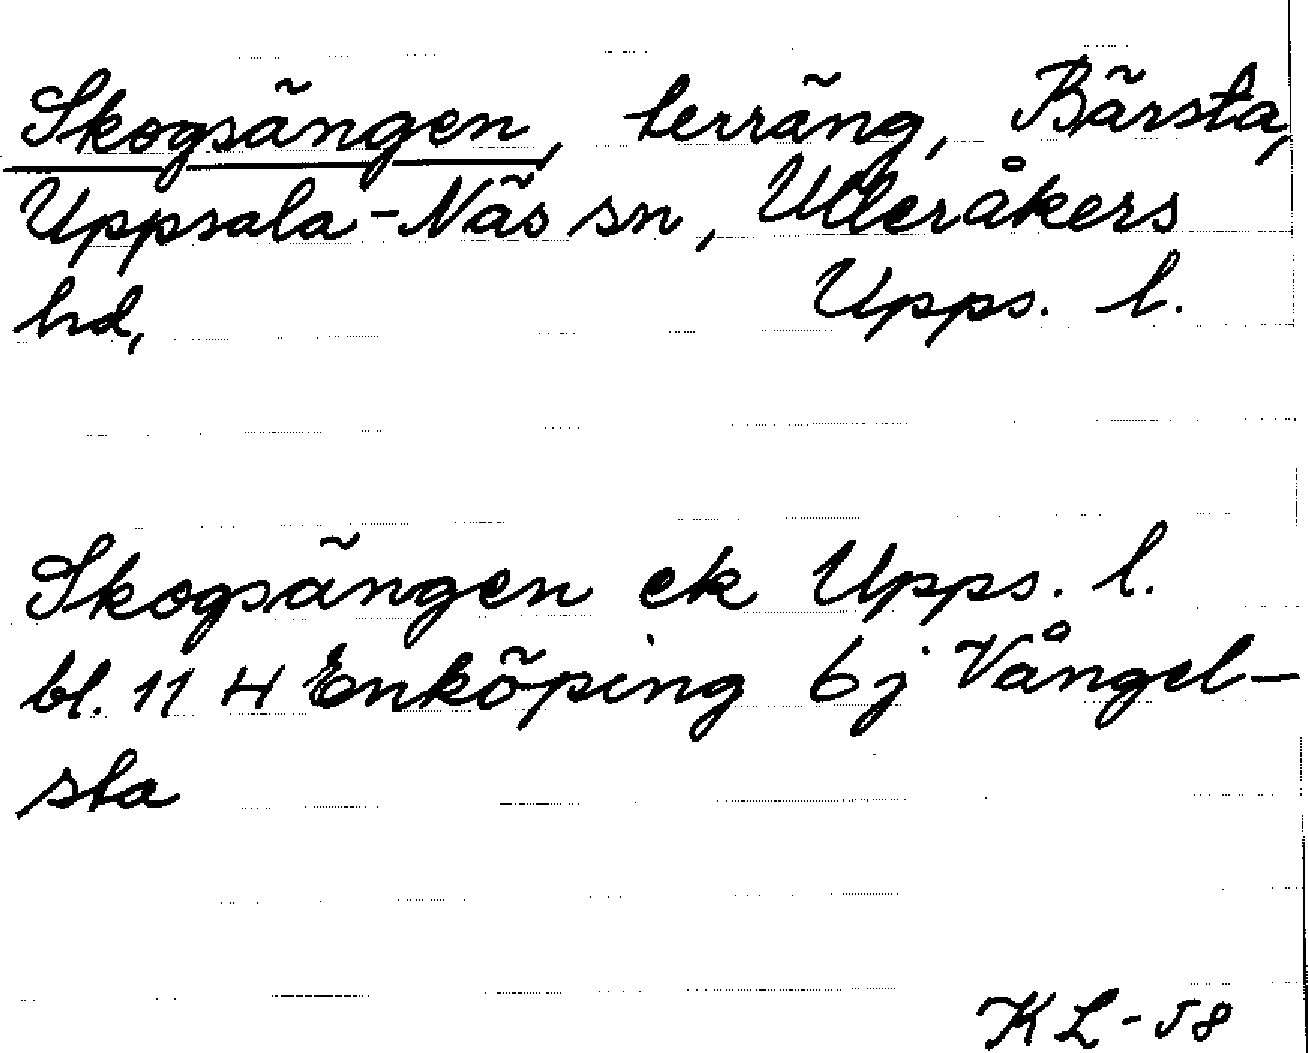 Skogsängen, terräng, Bärsta,
Uppsala-Näs sn, Ulleråkers
hd, Upps. l.
Skogsängen ek Upps. l.
bl. 11 H Enköping 6j Vångel-
sta
KL-58